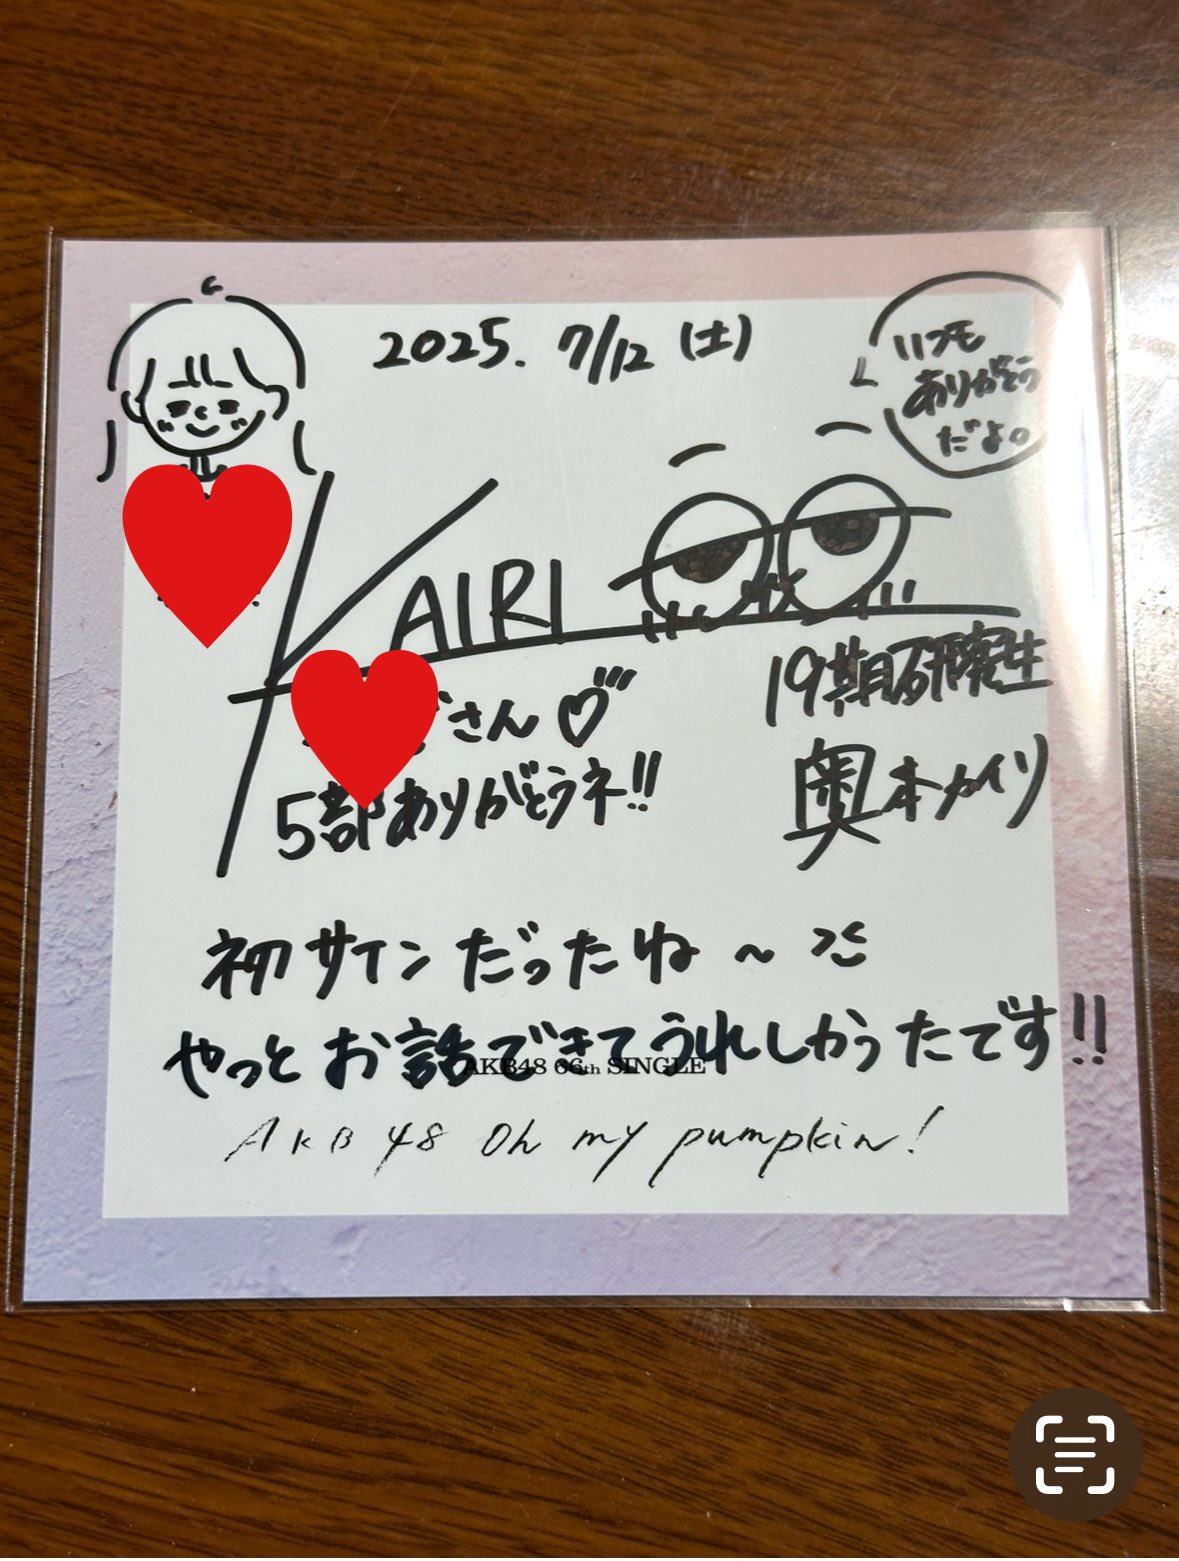 2025. 7/12 (土)
いつも
ありがとう
だよ。
KAIRI
さん♡
19期研究生
5部ありがとうネ!!
奥本カイリ
初サインだったね~
やっとお話できてうれしかったです!!
AKB48 66th SINGLE
AKB48 Oh my pumpkin!